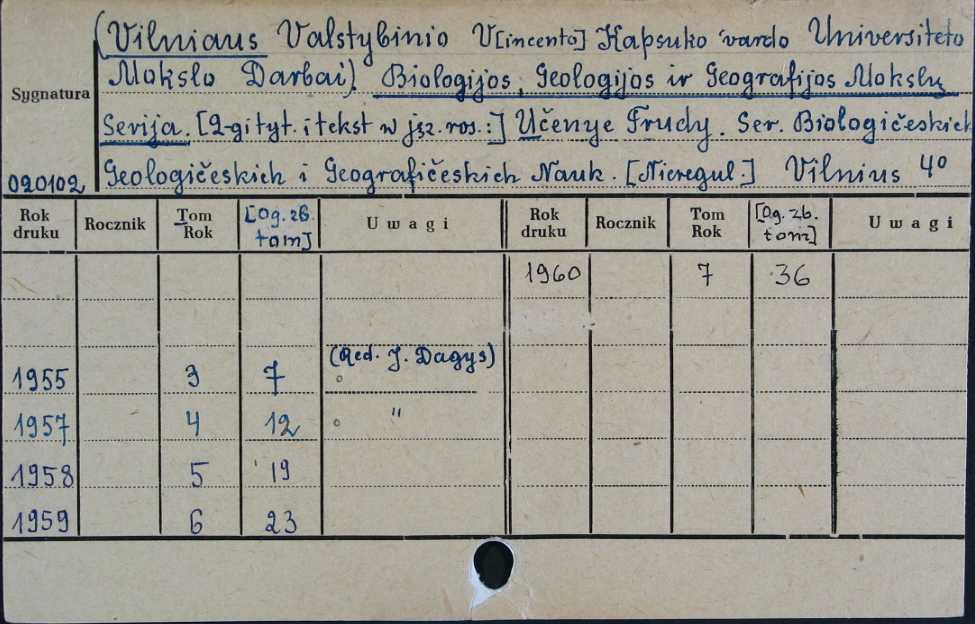 (Vilniaus Valstybinio V[incento] Kapsuko vardo Universiteto
Mokslo Darbai). Biologijos, Geologijos ir Geografijos Mokslų
Sygnatura
Serija. [2-gi tyt. i tekst w jęz. ros.:] Učenye Trudy. Ser. Biologičeskich
020102 Geologičeskich i Geografičeskich Nauk. [Nieregul.] Vilnius 4º
Rok druku Rocznik Tom Rok [Og. zb. tom] Uwagi Rok druku Rocznik Tom Rok [Og. zb. tom] Uwagi
1960 7 36
(Red. J. Dagys)
1955 3 7 º
1957 4 12 º "
1958 5 19
1959 6 23